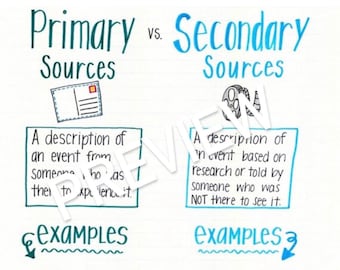 Primary
Sources
A description of
an event from
someone who was
there to experience it.
EXAMPLES
vs.
Secondary
Sources
A description of
an event based on
research or told by
someone who was
NOT there to see it.
EXAMPLES
PREVIEW